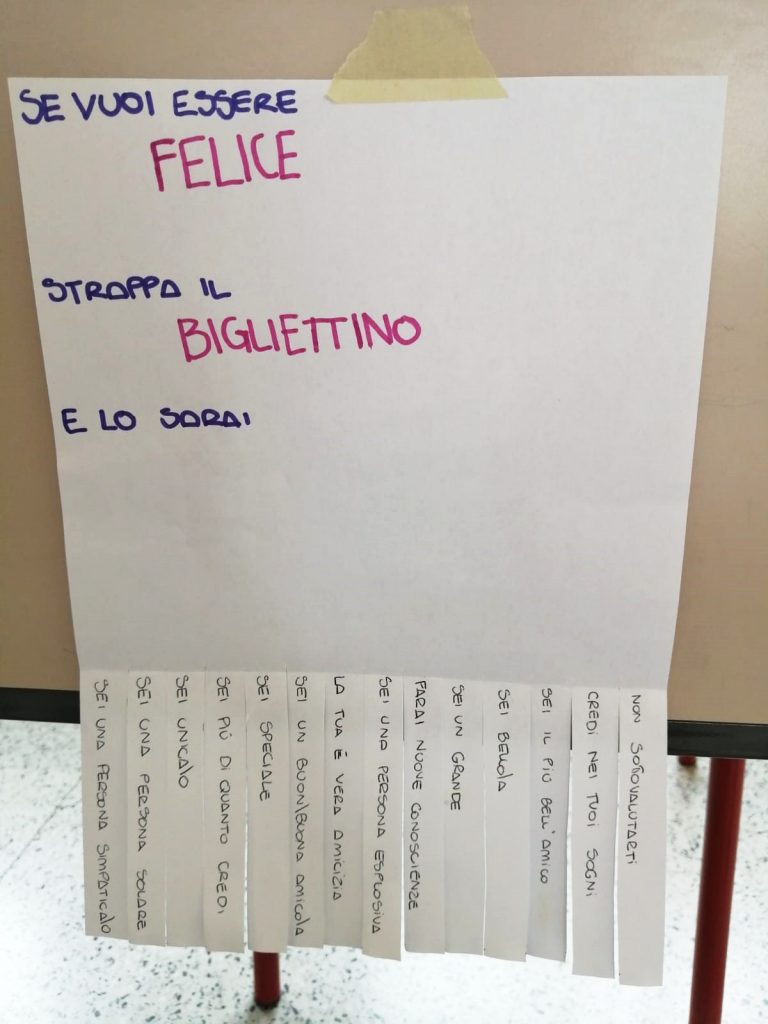 SE VUOI ESSERE
FELICE
STRAPPA IL
BIGLIETTINO
E LO SARAI
SEI UNA PERSONA SIMPATICA\O
SEI UNA PERSONA SOLARE
SEI UNICA\O
SEI PIÙ DI QUANTO CREDI
SEI SPECIALE
SEI UN BUON\BUONA AMICO\A
LA TUA È VERA AMICIZIA
SEI UNA PERSONA ESPLOSIVA
FARAI NUOVE CONOSCIENZE
SEI UN GRANDE
SEI BELLO\A
SEI IL PIÙ BELL'AMICO
CREDI NEI TUOI SOGNI
NON SOTTOVALUTARTI